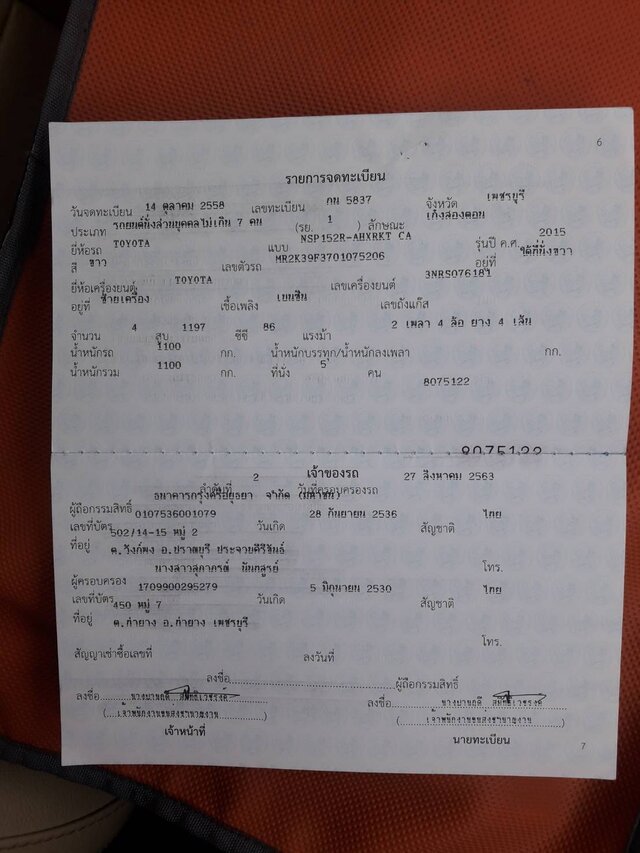 6
รายการจดทะเบียน
วันจดทะเบียน 14 ตุลาคม 2558 เลขทะเบียน กน 5837 จังหวัด เพชรบุรี
ประเภท รถยนต์นั่งส่วนบุคคลไม่เกิน 7 คน (รย. 1 ) ลักษณะ เก๋งสองตอน
ยี่ห้อรถ TOYOTA แบบ NSP152R-AHXRKT CA รุ่นปี ค.ศ. 2015
สี ขาว เลขตัวรถ MR2K39F3701075206 อยู่ที่ ใต้ที่นั่งขวา
ยี่ห้อเครื่องยนต์ TOYOTA เลขเครื่องยนต์ 3NRS076181
อยู่ที่ ซ้ายเครื่อง เชื้อเพลิง เบนซิน เลขถังแก๊ส
จำนวน 4 สูบ 1197 ซีซี 86 แรงม้า 2 เพลา 4 ล้อ ยาง 4 เส้น
น้ำหนักรถ 1100 กก. น้ำหนักบรรทุก/น้ำหนักลงเพลา กก.
น้ำหนักรวม 1100 กก. ที่นั่ง 5 คน
8075122
8075122
เจ้าของรถ
ลำดับที่ 2 วันที่ครอบครองรถ 27 สิงหาคม 2563
ผู้ถือกรรมสิทธิ์ ธนาคารกรุงศรีอยุธยา จำกัด (มหาชน)
เลขที่บัตร 0107536001079 วันเกิด 28 กันยายน 2536 สัญชาติ ไทย
ที่อยู่ 502/14-15 หมู่ 2
ต.วังก์พง อ.ปราณบุรี ประจวบคีรีขันธ์ โทร.
ผู้ครอบครอง นางสาวสุภาภรณ์
เลขที่บัตร 1709900295279 วันเกิด 5 มิถุนายน 2530 สัญชาติ ไทย
ที่อยู่ 450 หมู่ 7
ต.ท่ายาง อ.ท่ายาง เพชรบุรี โทร.
สัญญาเช่าซื้อเลขที่ ลงวันที่
ลงชื่อ ผู้ถือกรรมสิทธิ์
ลงชื่อ ลงชื่อ
(เจ้าพนักงานขนส่งชำนาญงาน) (เจ้าพนักงานขนส่งชำนาญงาน)
เจ้าหน้าที่ นายทะเบียน
7